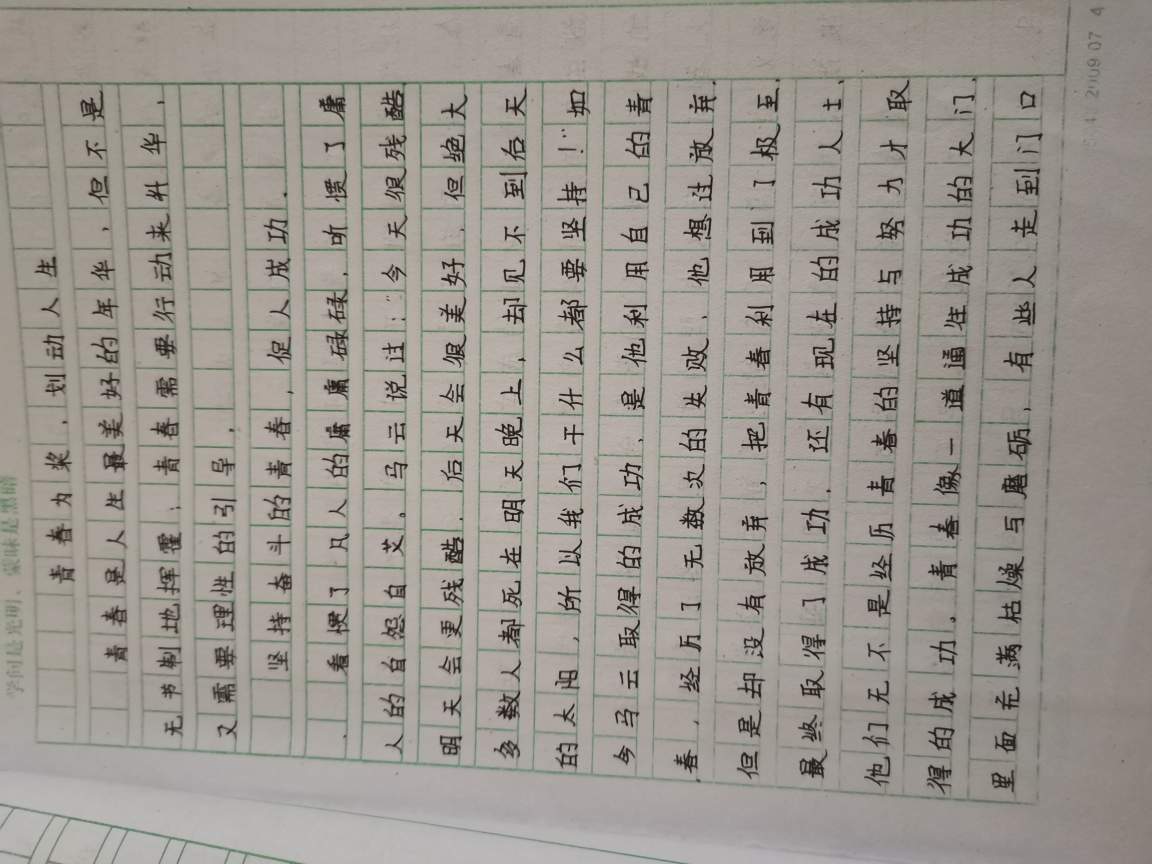 学问是光明、蒙昧是黑暗
青春为桨，划动人生
青春是人生最美好的年华，但不是
无节制地挥霍，青春需要行动来升华，
又需要理性的引导，
坚持奋斗的青春，促人成功．
看惯了凡人的庸庸碌碌，听惯了庸
人的自怨自艾。马云说过："今天很残酷
明天会更残酷．后天会很美好．但绝大
多数人都死在明天晚上，却见不到后天
的太阳，所以我们干什么都要坚持！"如
今马云取得的成功，是他利用自己的青
春，经历了无数次的失败，他想过放弃．
但是却没有放弃，把青春利用到了极至．
最终取得了成功．还有现在的成功人士、
他们无不是经历青春的坚持与努力才取
得的成功。青春像一道通往成功的大门，
里面充满枯燥与磨砺，有些人走到门口
2009 07 4